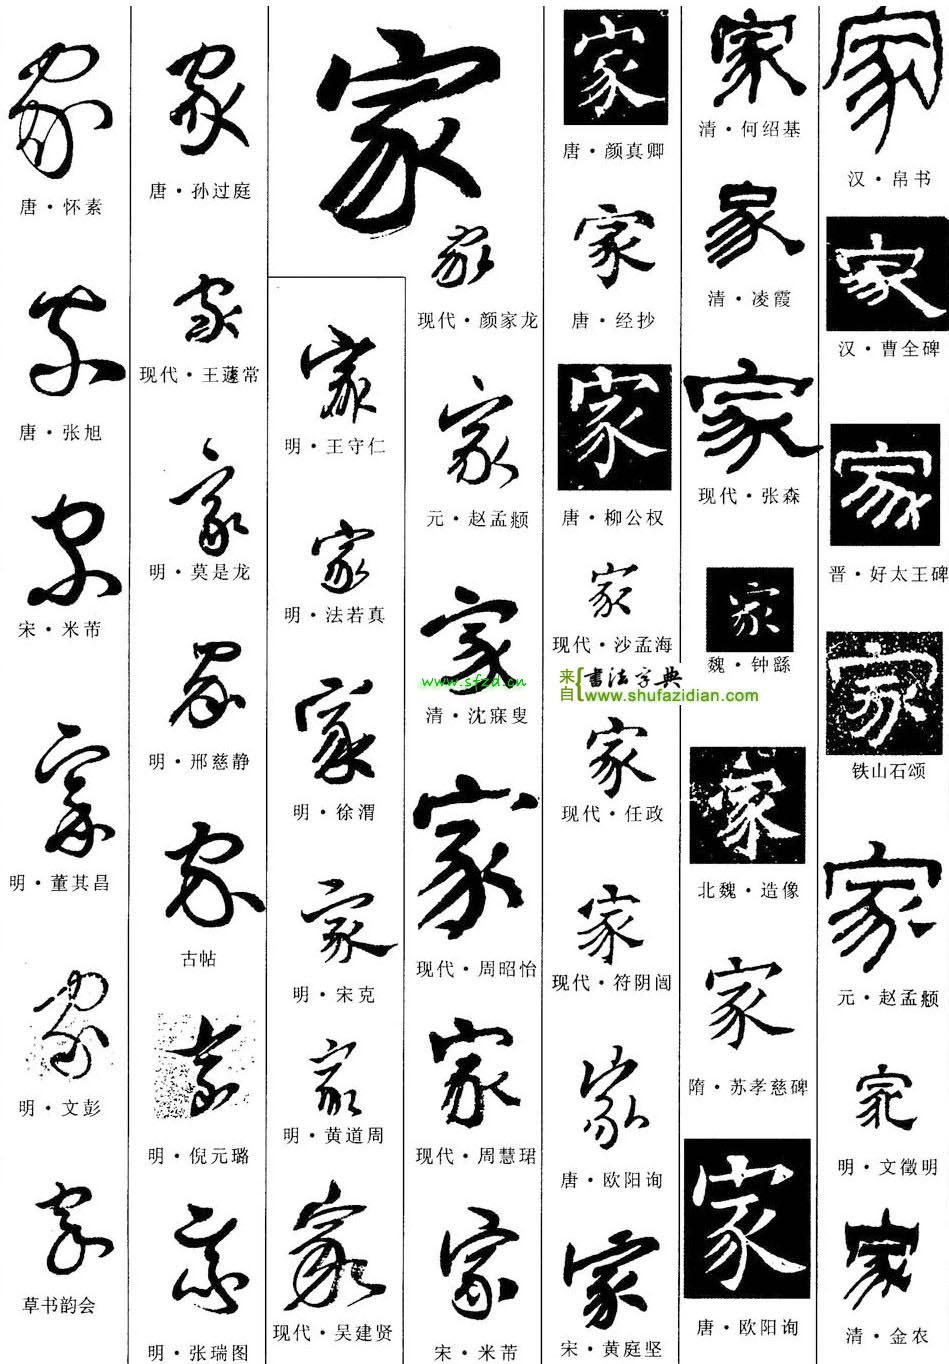 家
汉·帛书
家
汉·曹全碑
家
晋·好太王碑
家
铁山石颂
家
元·赵孟頫
家
明·文徵明
家
清·金农
家
清·何绍基
家
清·凌霞
家
现代·张森
家
魏·钟繇
家
北魏·造像
家
隋·苏孝慈碑
家
唐·欧阳询
家
唐·颜真卿
家
唐·经抄
家
唐·柳公权
家
现代·沙孟海
来自 书法字典
www.shufazidian.com
家
现代·任政
家
现代·符阴闿
家
唐·欧阳询
家
宋·黄庭坚
家
家
现代·颜家龙
家
元·赵孟頫
家
www.sfzd.cn
清·沈寐叟
家
现代·周昭怡
家
现代·周慧珺
家
宋·米芾
家
明·王守仁
家
明·法若真
家
明·徐渭
家
明·宋克
家
明·黄道周
家
现代·吴建贤
家
唐·孙过庭
家
现代·王蘧常
家
明·莫是龙
家
明·邢慈静
家
古帖
家
明·倪元璐
家
明·张瑞图
家
唐·怀素
家
唐·张旭
家
宋·米芾
家
明·董其昌
家
明·文彭
家
草书韵会